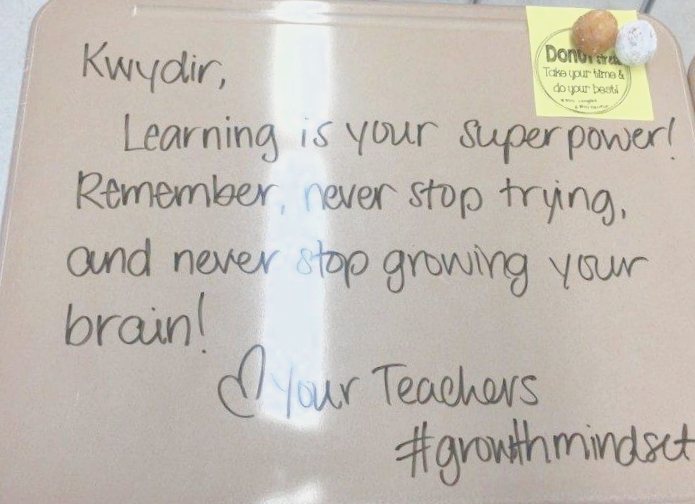 Kwydir,
Learning is your superpower!
Remember, never stop trying,
and never stop growing your
brain!
♡ Your Teachers
#growthmindset
Donut
Take your time &
do your best!